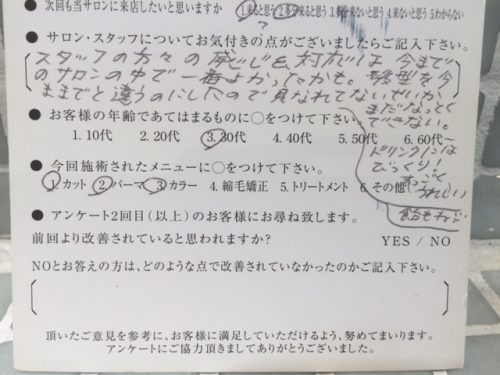 ● 次回も当サロンに来店したいと思いますか 1.来ると思う 2.多分来ると思う 3.来ないと思う 4.来ないと思う 5.わからない
● サロン・スタッフについてお気付きの点がございましたらご記入下さい。
スタッフの方々の感じも対応は 今まで
のサロンの中で一番よかったかも。髪型を今
ままでと違うのにしたので見なれてないせいか、
まだなっとく
できない。
ドリンクには
びっくり!
すっごく
うれしい
● お客様の年齢であてはまるものに○をつけて下さい。
1. 10代 2. 20代 3. 30代 4. 40代 5. 50代 6. 60代~
● 今回施術されたメニューに○をつけて下さい。
1. カット 2. パーマ 3. カラー 4. 縮毛矯正 5. トリートメント 6. その他
● アンケート2回目(以上)のお客様にお尋ね致します。
前回より改善されていると思われますか? YES / NO
NOとお答えの方は、どのような点で改善されていなかったのかご記入下さい。
頂いたご意見を参考に、お客様に満足していただけるよう、努めてまいります。
アンケートにご協力頂きましてありがとうございました。